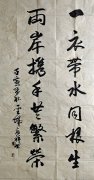 一衣带水同根生
两岸携手共繁荣